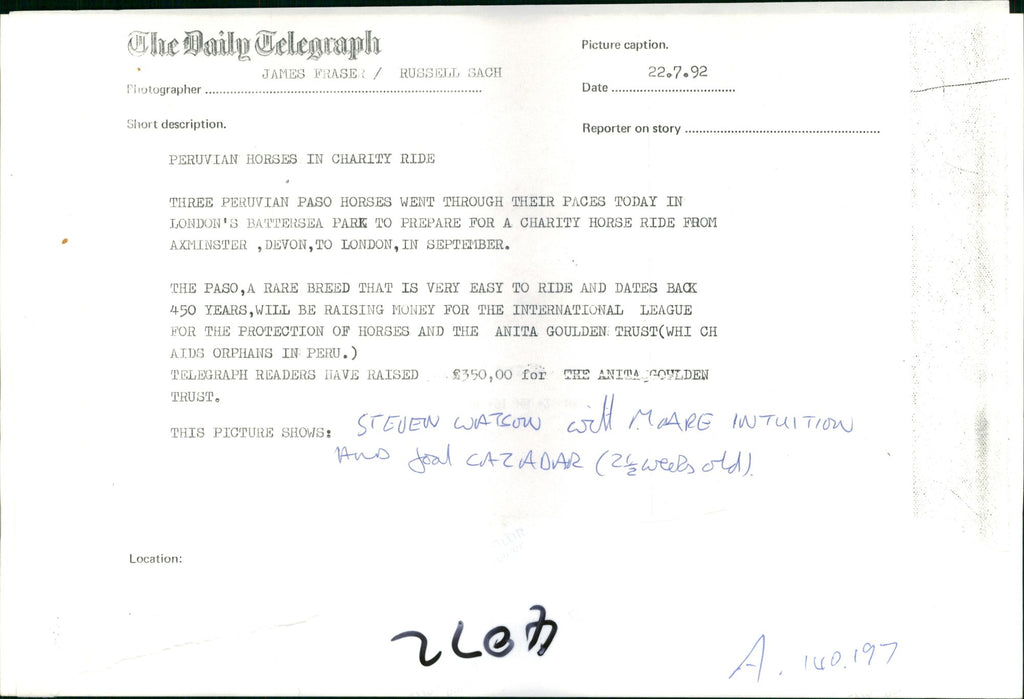 The Daily Telegraph
Picture caption.
JAMES FRASER / RUSSELL SACH
Photographer
22.7.92
Date
Short description.
Reporter on story
PERUVIAN HORSES IN CHARITY RIDE
THREE PERUVIAN PASO HORSES WENT THROUGH THEIR PACES TODAY IN
LONDON'S BATTERSEA PARK TO PREPARE FOR A CHARITY HORSE RIDE FROM
AXMINSTER ,DEVON,TO LONDON,IN SEPTEMBER.
THE PASO,A RARE BREED THAT IS VERY EASY TO RIDE AND DATES BACK
450 YEARS,WILL BE RAISING MONEY FOR THE INTERNATIONAL LEAGUE
FOR THE PROTECTION OF HORSES AND THE ANITA GOULDEN TRUST(WHI CH
AIDS ORPHANS IN PERU.)
TELEGRAPH READERS HAVE RAISED £350,00 for THE ANITA GOULDEN
TRUST.
THIS PICTURE SHOWS: STEVEN WATSON with MARE INTUITION
AND foal CAZADAR (2½ weeks old).
Location:
A. 140.197